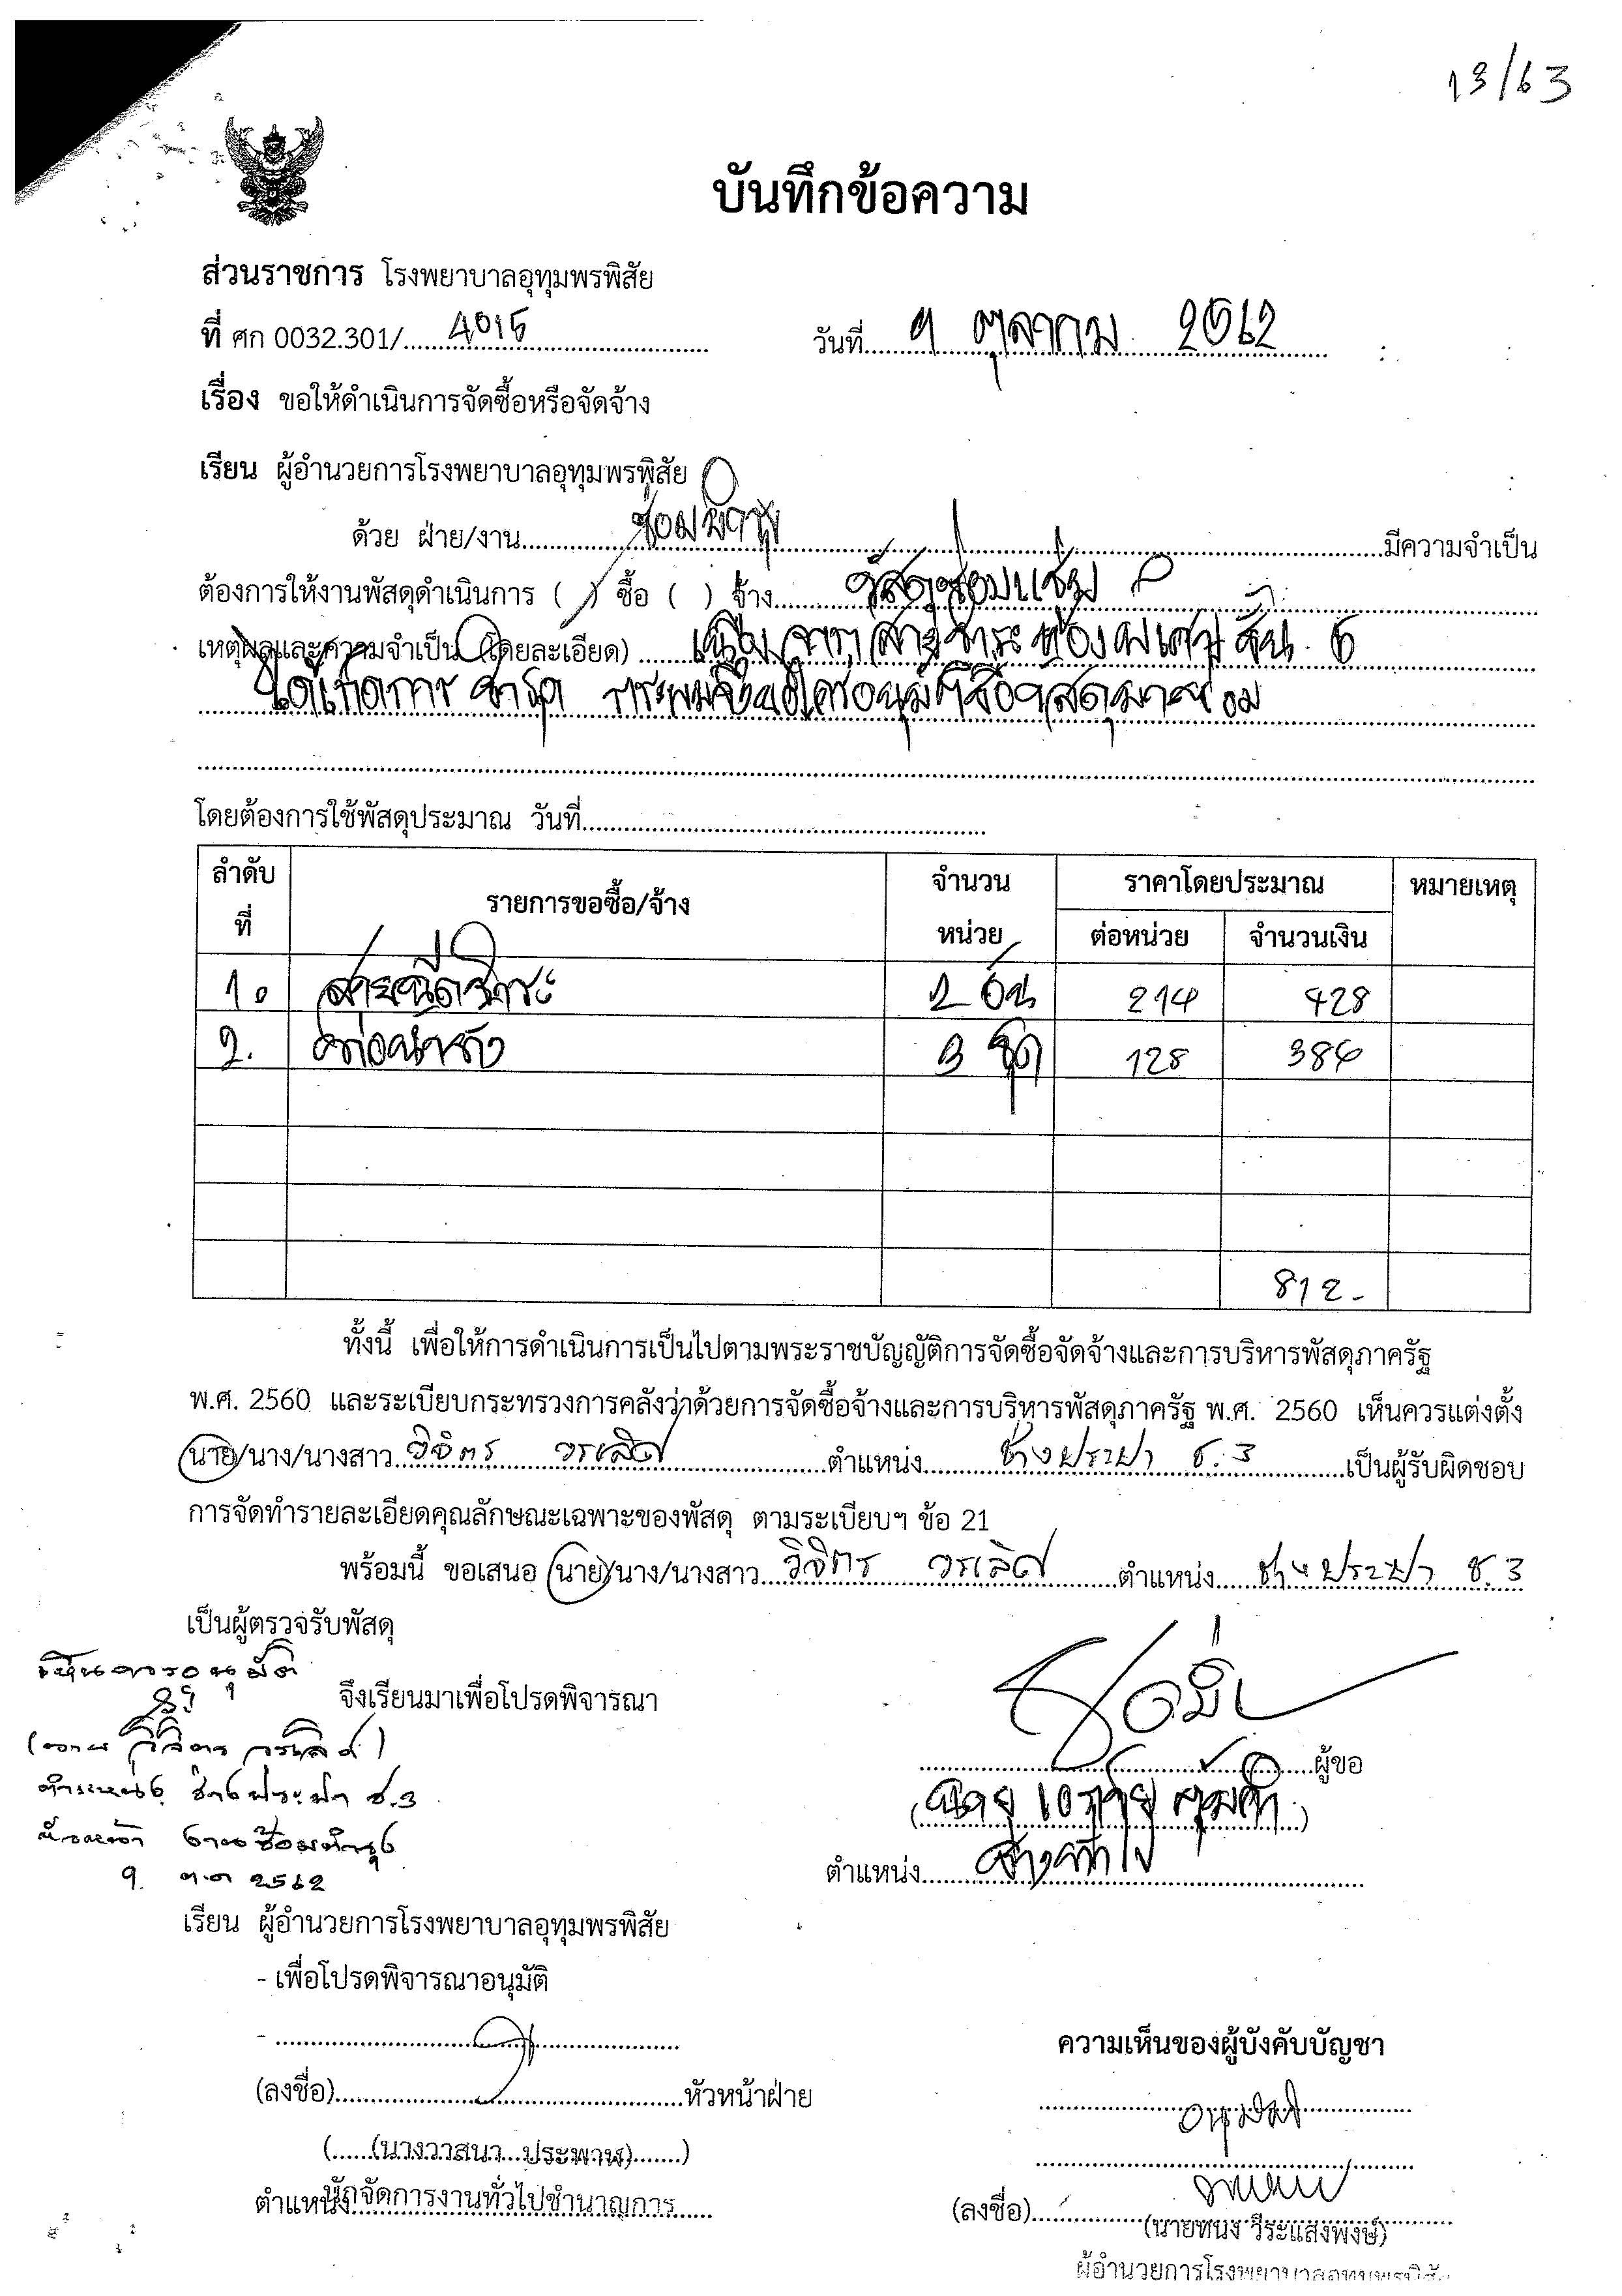 13/63
บันทึกข้อความ
ส่วนราชการ โรงพยาบาลอุทุมพรพิสัย
ที่ ศก 0032.301/.....4015..... วันที่.....9 ตุลาคม 2562.....
เรื่อง ขอให้ดำเนินการจัดซื้อหรือจัดจ้าง
เรียน ผู้อำนวยการโรงพยาบาลอุทุมพรพิสัย
ด้วย ฝ่าย/งาน.....ซ่อมบำรุง.....มีความจำเป็น
ต้องการให้งานพัสดุดำเนินการ (/) ซื้อ ( ) จ้าง.....วัสดุซ่อมแซม
เหตุผลและความจำเป็น (โดยละเอียด).....เนื่องจากสายชำระห้องพิเศษชั้น 5
ได้เกิดการชำรุด กระผมจึงขออนุมัติซื้อวัสดุมาซ่อม
โดยต้องการใช้พัสดุประมาณ วันที่.....
ลำดับที่ รายการขอซื้อ/จ้าง จำนวนหน่วย ราคาโดยประมาณ หมายเหตุ
ต่อหน่วย จำนวนเงิน
1. สายฉีดชำระ 2 อัน 214 428
2. ท่อน้ำทิ้ง 3 ชุด 128 384
812.-
ทั้งนี้ เพื่อให้การดำเนินการเป็นไปตามพระราชบัญญัติการจัดซื้อจัดจ้างและการบริหารพัสดุภาครัฐ
พ.ศ. 2560 และระเบียบกระทรวงการคลังว่าด้วยการจัดซื้อจ้างและการบริหารพัสดุภาครัฐ พ.ศ. 2560 เห็นควรแต่งตั้ง
นาย/นาง/นางสาว..วิจิตร วรเลิศ.....ตำแหน่ง.....ช่างประปา ช.3.....เป็นผู้รับผิดชอบ
การจัดทำรายละเอียดคุณลักษณะเฉพาะของพัสดุ ตามระเบียบฯ ข้อ 21
พร้อมนี้ ขอเสนอ นาย/นาง/นางสาว...วิจิตร วรเลิศ.....ตำแหน่ง.....ช่างประปา ช.3
เป็นผู้ตรวจรับพัสดุ
เห็นควรอนุมัติ
จึงเรียนมาเพื่อโปรดพิจารณา
(นาย วิจิตร วรเลิศ)
.....ผู้ขอ
ตำแหน่ง ช่างประปา ช.3
หัวหน้า งานซ่อมบำรุง
ตำแหน่ง.....ช่างทั่วไป
9 ต.ค 2562
เรียน ผู้อำนวยการโรงพยาบาลอุทุมพรพิสัย
- เพื่อโปรดพิจารณาอนุมัติ
- .....
ความเห็นของผู้บังคับบัญชา
(ลงชื่อ).....หัวหน้าฝ่าย
อนุมัติ
(.....(นางวาสนา...ประพาน).....)
ตำแหน่ง นักจัดการงานทั่วไปชำนาญการ
(ลงชื่อ).....
(นายทนง วีระแสงพงษ์)
ผู้อำนวยการโรงพยาบาลอุทุมพรพิสัย